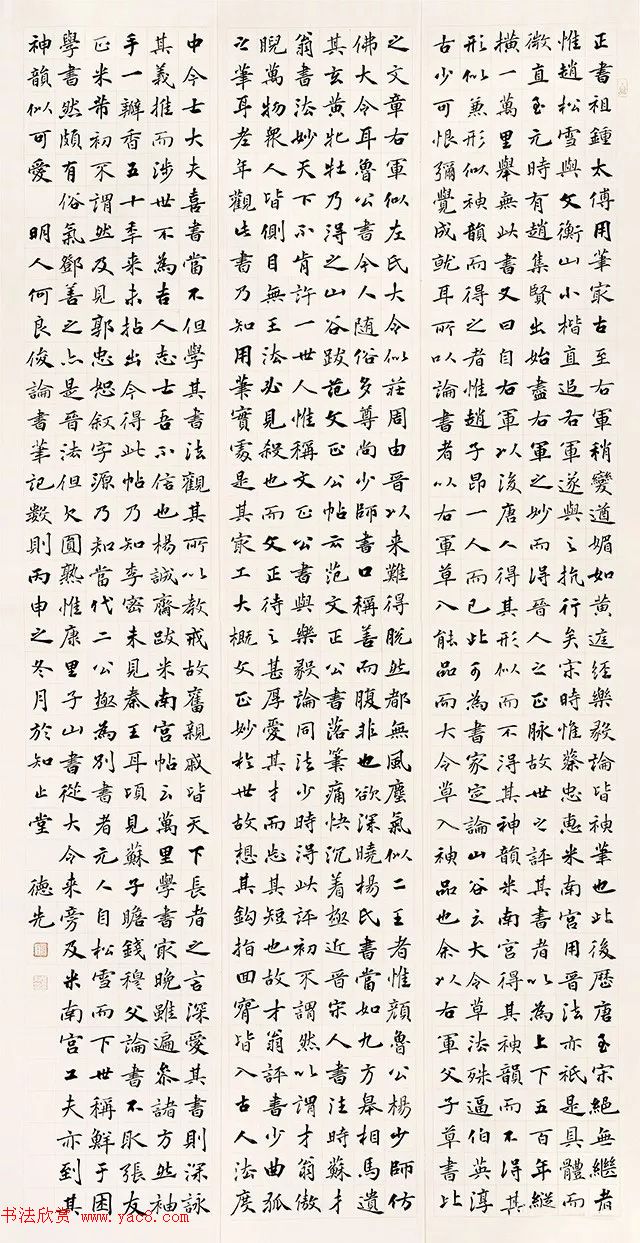 正書祖鍾太傅用筆最古至右軍稍變遒媚如黃庭經樂毅論皆神筆也此後歷唐至宋絕無繼者
惟趙松雪與文衡山小楷直追右軍遂與之抗行矣宋時惟蔡忠惠米南宮用晉法亦衹是具體而
微直至元時有趙集賢出始盡右軍之妙而得晉人之正脉故世之評其書者以為上下五百年縱
橫一萬里舉無此書又曰自右軍以後唐人得其形似而不得其神韻米南宮得其神韻而不得其
形似兼形似神韻而得之者惟趙子昂一人而已此可為書家定論山谷云大令草法殊逼伯英淳
古少可恨彌覺成就耳所以論書者以右軍草入能品而大令草入神品也余以右軍父子草書比
之文章右軍似左氏大令似莊周由晉以来難得脫然都無風塵氣似二王者惟顏魯公楊少師仿
佛大令耳魯公書今人随俗多尊尚少師書口稱善而腹非也欲深曉楊氏書當如九方皋相馬遺
其玄黃牝牡乃得之山谷跋范文正公帖云范文正公書落筆痛快沉着極近晉宋人書法時蘇才
翁書法妙天下不肯許一世人惟稱文正公書與樂毅論同法少時得此評初不謂然以謂才翁傲
睨萬物衆人皆側目無王法必見殺也而文正待之甚厚愛其才而忘其短也故才翁評書少曲狐
之筆耳老年觀此書乃知用筆實處是其最工大概文正妙於世故想其鈎指回腕皆入古人法度
中今士大夫喜書當不但學其書法觀其所以教戒故舊親戚皆天下長者之言深愛其書則深詠
其義推而涉世不為吉人志士吾不信也楊誠齋跋米南宮帖云萬里學書最晚雖遍參諸方然袖
手一瓣香五十季来未拈出今得此帖乃知李密未見秦王耳頃見蘇子瞻錢穆父論書不取張友
正米芾初不謂然及見郭忠恕敘字源乃知當代二公極為別書者元人自松雪而下世稱鮮于困
學書然頗有俗氣鄧善之亦是晉法但欠圓熟惟康里子山書從大令来旁及米南宮工夫亦到其
神韻似可愛 明人何良俊論書筆記數則丙申之冬月於知止堂 德先
书法欣赏 www.yac8.com